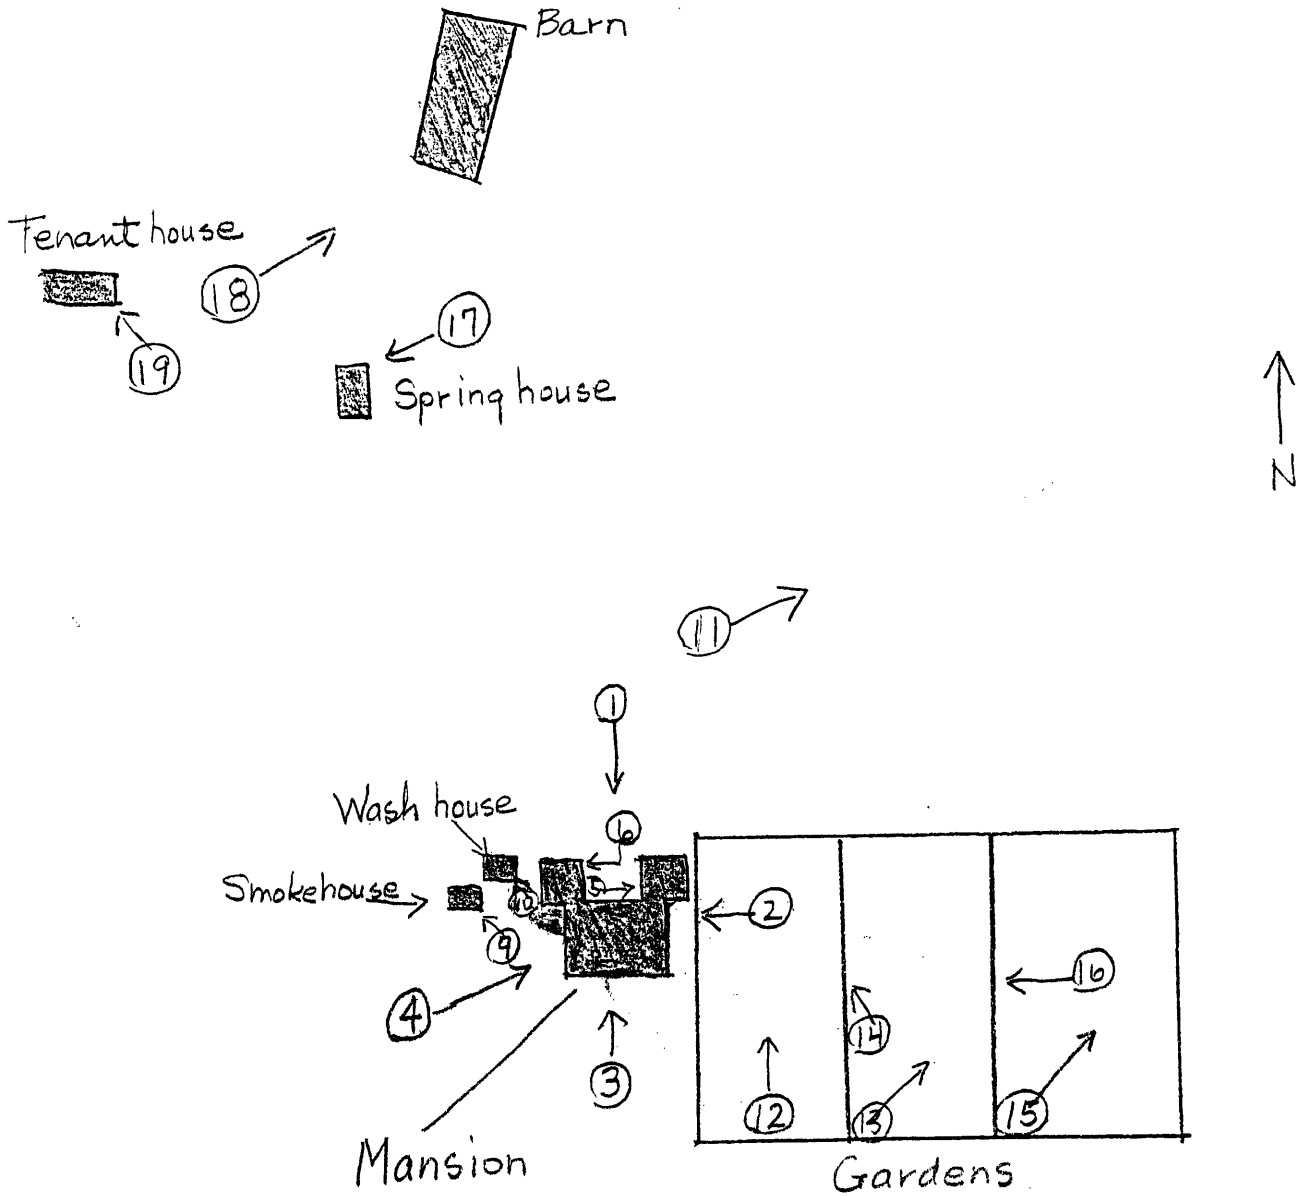 Barn
Tenant house
18
17
19
Spring house
N
11
1
Wash house
6
Smokehouse
5
10
2
9
16
4
14
3
12
13
15
Mansion
Gardens